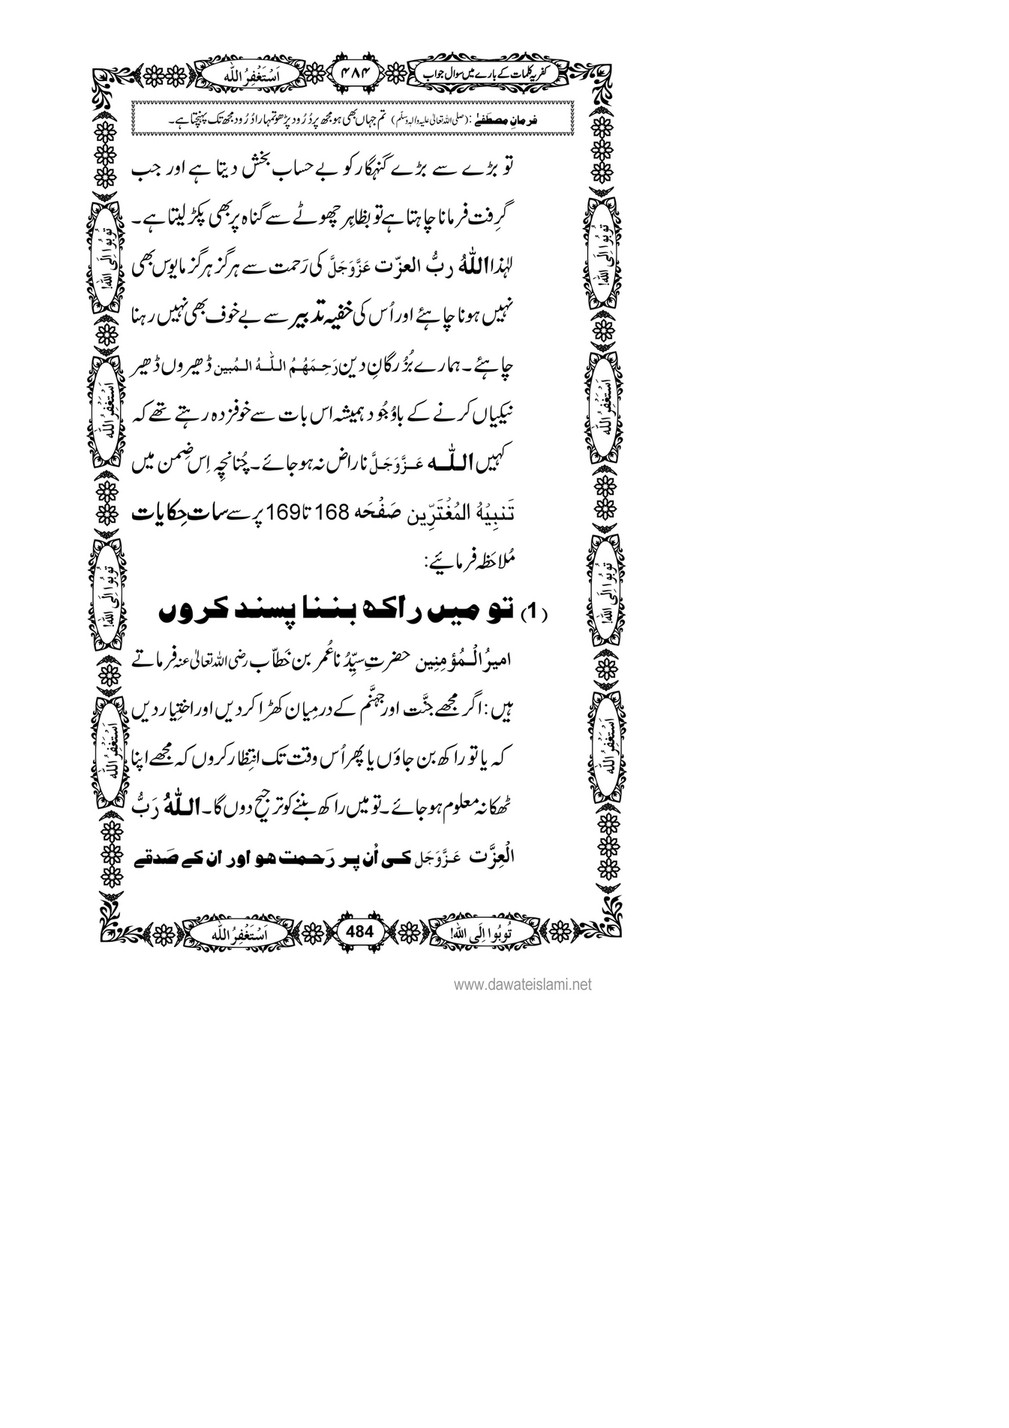 کفریہ کلمات کے بارے میں سوال جواب ۴۸۴ اَسْتَغْفِرُ اللّٰه
فرمانِ مصطَفےٰ :(صلی اللہ تعالیٰ علیہ واٰلہٖ وسلّم) تم جہاں بھی ہو مجھ پر دُرُود پڑھو تمہارا دُرُود مجھ تک پہنچتا ہے۔
تو بڑے سے بڑے گنہگار کو بے حساب بخش دیتا ہے اور جب
گرِفت فرمانا چاہتا ہے تو بظاہِر چھوٹے سے گناہ پر بھی پکڑ لیتا ہے۔
لہٰذا اللّٰهُ ربُّ العزّت عَزَّوَجَلَّ کی رَحمت سے ہرگز ہرگز مایوس بھی
نہیں ہونا چاہئے اور اُس کی خفیہ تدبیر سے بے خوف بھی نہیں رہنا
چاہئے۔ ہمارے بُزُرگانِ دین رَحِمَهُمُ اللّٰهُ المُبین ڈھیروں ڈھیر
نیکیاں کرنے کے باوُجُود ہمیشہ اس بات سے خوفزدہ رہتے تھے کہ
کہیں اللّٰه عَزَّوَجَلَّ ناراض نہ ہو جائے۔ چُنانچِہ اِس ضِمن میں
تَنبِیْهُ المُغْتَرِّین صَفْحَه 168 تا 169 پر سے سات حِکایات
مُلاحَظہ فرمائیے:
(1) تو میں راکھ بننا پسند کروں
امیرُ الْمُؤمِنِین حضرتِ سیِّدُنا عُمر بن خَطّاب رضی اللہ تعالیٰ عنہ فرماتے
ہیں: اگر مجھے جنَّت اور جہنَّم کے درمِیان کھڑا کر دیں اور اختِیار دیں
کہ یا تو راکھ بن جاؤں یا پھر اُس وقت تک انتِظار کروں کہ مجھے اپنا
ٹھکانہ معلوم ہو جائے۔ تو میں راکھ بننے کو ترجیح دوں گا۔ اللّٰهُ رَبُّ
الْعِزَّت عَزَّوَجَل کی اُن پر رَحمت ہو اور ان کے صَدقے
تُوبُوا اِلَی اللّٰه!
اَسْتَغْفِرُ اللّٰه
تُوبُوا اِلَی اللّٰه!
اَسْتَغْفِرُ اللّٰه
تُوبُوا اِلَی اللّٰه!
اَسْتَغْفِرُ اللّٰه
تُوبُوا اِلَی اللّٰه!
اَسْتَغْفِرُ اللّٰه
تُوبُوا اِلَی اللّٰه! 484 اَسْتَغْفِرُ اللّٰه
www.dawateislami.net